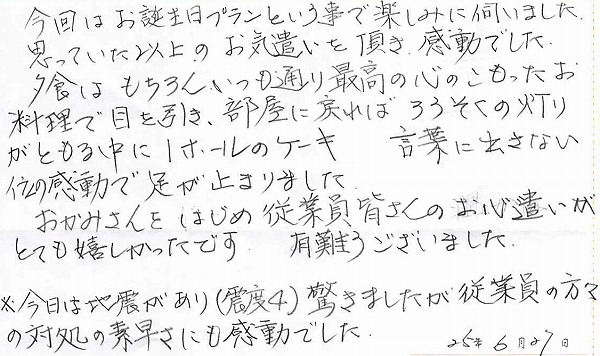 今回はお誕生日プランという事で楽しみに伺いました。
思っていた以上の お気遣いを頂き、感動でした。
夕食は もちろん、いつも通り最高の心のこもったお
料理で目を引き、部屋に戻れば ろうそくの灯り
がともる中に 1ホールのケーキ 言葉に出さない
位の感動で 足が止まりました。
おかみさんを はじめ 従業員皆さんの お心遣いが
とても嬉しかったです 有難うございました。
※今日は地震があり(震度4) 驚きましたが 従業員の方々
の対処の素早さにも感動でした。
25年 6月27日